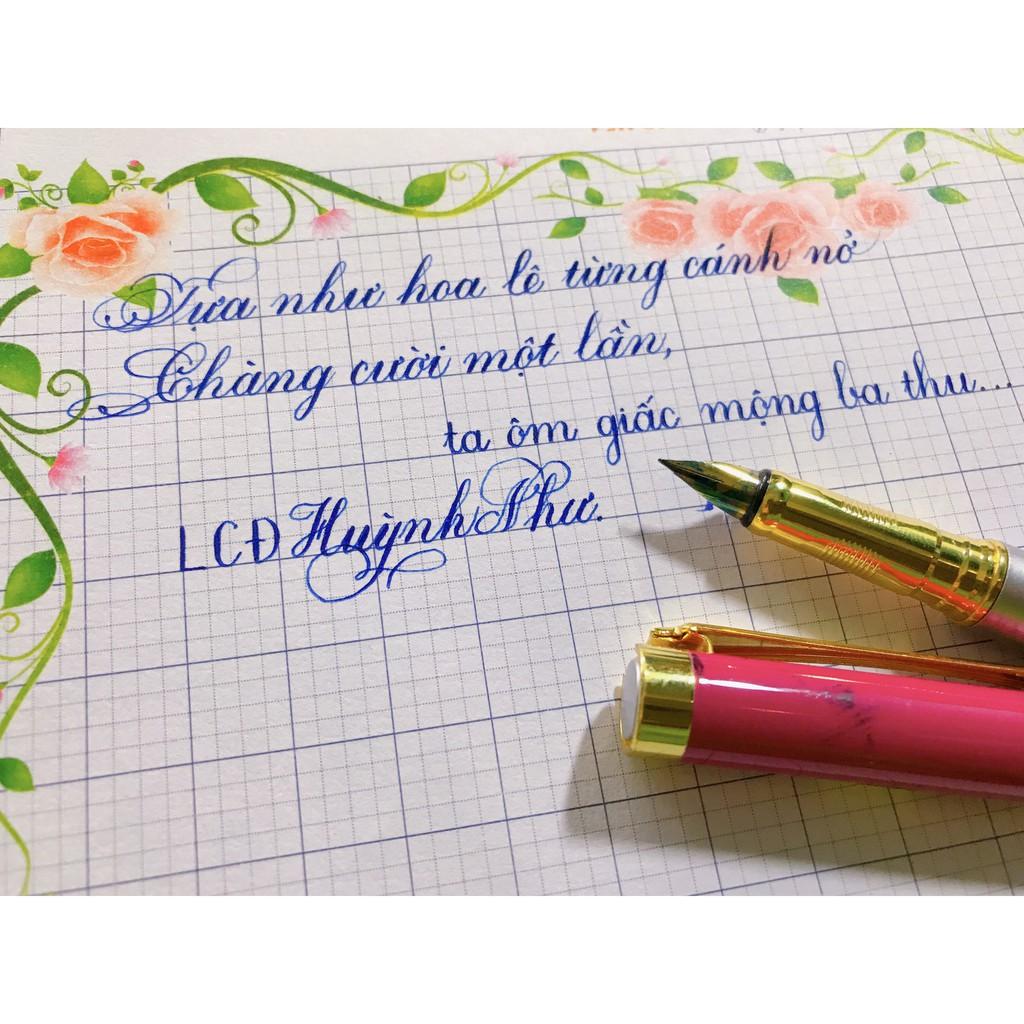 Tựa như hoa lê từng cánh nở
Chàng cười một lần,
ta ôm giấc mộng ba thu...
LCĐ Huỳnh Như.